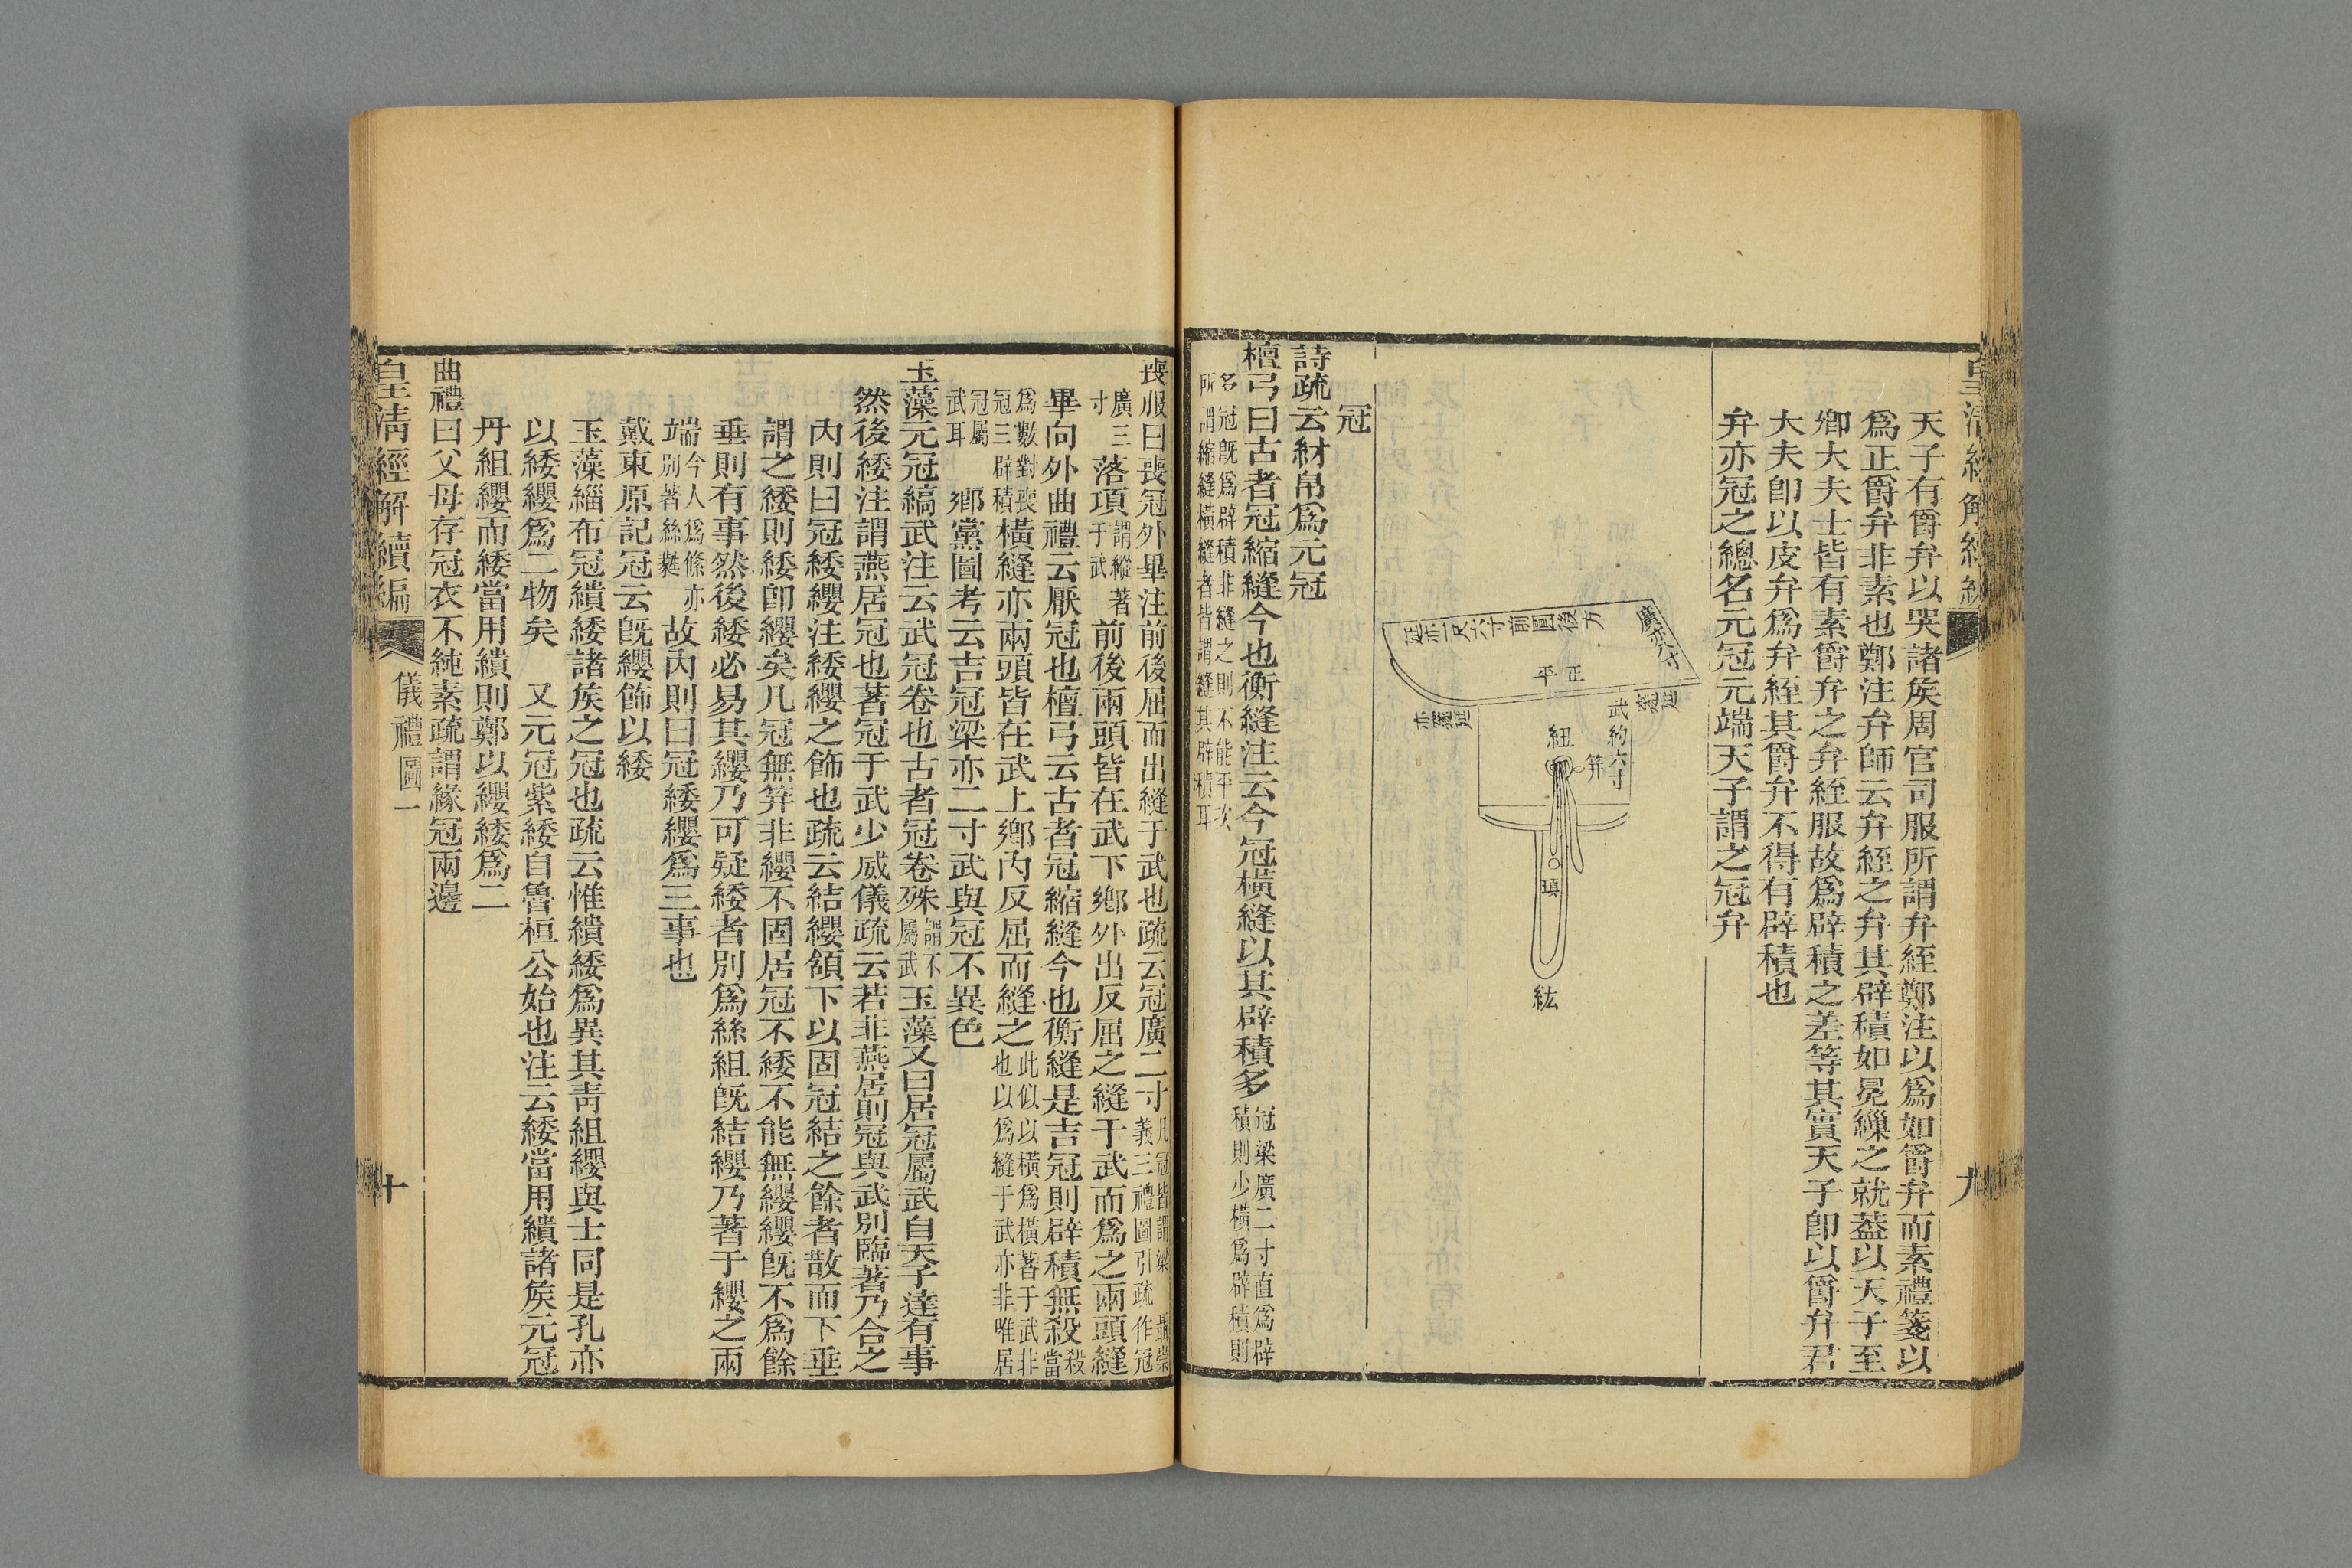 天子有爵弁以哭諸矦周官司服所謂弁絰鄭注以爲如爵弁而素禮箋以
爲正爵弁非素也鄭注弁師云弁絰之弁其辟積如冕繅之就葢以天子至
卿大夫士皆有素爵弁之弁絰服故爲辟積之差等其實天子卽以爵弁君
大夫卽以皮弁爲弁絰其爵弁不得有辟積也
弁亦冠之總名元冠元端天子謂之冠弁
廣亦八寸
延亦一尺六寸前圓後方
正平
武約六寸
紐
笄
瑱
紘
冠
詩疏云緇帛爲元冠
檀弓曰古者冠縮縫今也衡縫注云今冠橫縫以其辟積多
冠梁廣二寸直爲辟
積則少橫爲辟積則
名冠旣爲辟積非縫之則不能平次
所謂縮縫橫縫者皆謂縫其辟積耳
九
喪服曰喪冠外畢注前後屈而出縫于武也疏云冠廣二寸
凡冠皆謂梁聶崇
義三禮圖引疏作冠
廣三
寸
落項
謂縱著
于武
前後兩頭皆在武下鄉外出反屈之縫于武而爲之兩頭縫
畢向外曲禮云厭冠也檀弓云古者冠縮縫今也衡縫是吉冠則辟積無殺
殺
當
爲數對喪
冠三辟積
橫縫亦兩頭皆在武上鄉內反屈而縫之
此似以橫爲橫著于武非
也以爲縫于武亦非唯居
冠屬
武耳
鄉黨圖考云吉冠梁亦二寸武與冠不異色
玉藻元冠縞武注云武冠卷也古者冠卷殊
謂不
屬武
玉藻又曰居冠屬武自天子達有事
然後緌注謂燕居冠也著冠于武少威儀疏云若非燕居則冠與武別臨著乃合之
內則曰冠緌纓注緌纓之飾也疏云結纓頷下以固冠結之餘者散而下垂
謂之緌則緌卽纓矣凡冠無笄非纓不固居冠不緌不能無纓纓旣不爲餘
垂則有事然後緌必易其纓乃可疑緌者別爲絲組旣結纓乃著于纓之兩
端
今人爲絛亦
別著絲㲚
故內則曰冠緌纓爲三事也
戴東原記冠云旣纓飾以緌
玉藻緇布冠繢緌諸矦之冠也疏云惟繢緌爲異其靑組纓與士同是孔亦
以緌纓爲二物矣　又元冠紫緌自魯桓公始也注云緌當用繢諸矦元冠
丹組纓而緌當用繢則鄭以纓緌爲二
曲禮曰父母存冠衣不純素疏謂緣冠兩邊
皇淸經解續編
儀禮圖一
十